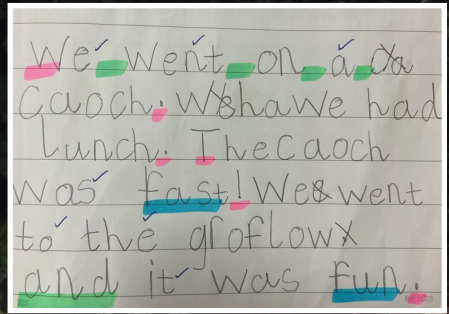 We went on a
Caoch. We hawe had
Lunch. The Caoch
was fast! We went
to the groflow
and it was fun.